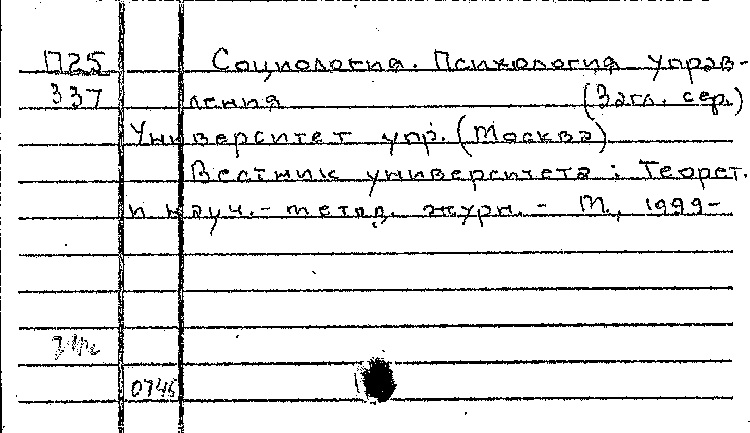 П25 Социология. Психология управ-
337 ления (Загл. сер.)
Университет упр. (Москва)
Вестник университета: Теорет.
и науч.-метод. журн. - М., 1999-
0746